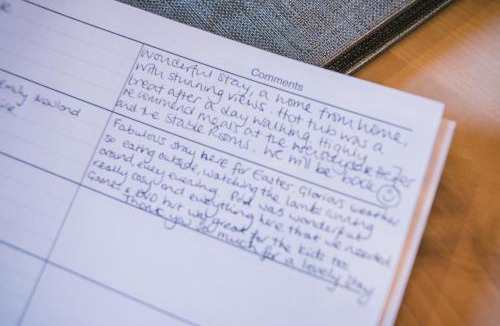 Comments
Wonderful stay, a home from home,
with stunning views. Hot tub was a
treat after a day walking. Highly
recommend meals at the
and the Stable Rooms. We will be back
Fabulous stay here for Easter. Glorious weather
so eating outside, watching the lambs running
around every evening. Pod was wonderful
really cosy and everything here that we needed
Games & DVD hut was great for the kids too.
Thank you so much for a lovely stay